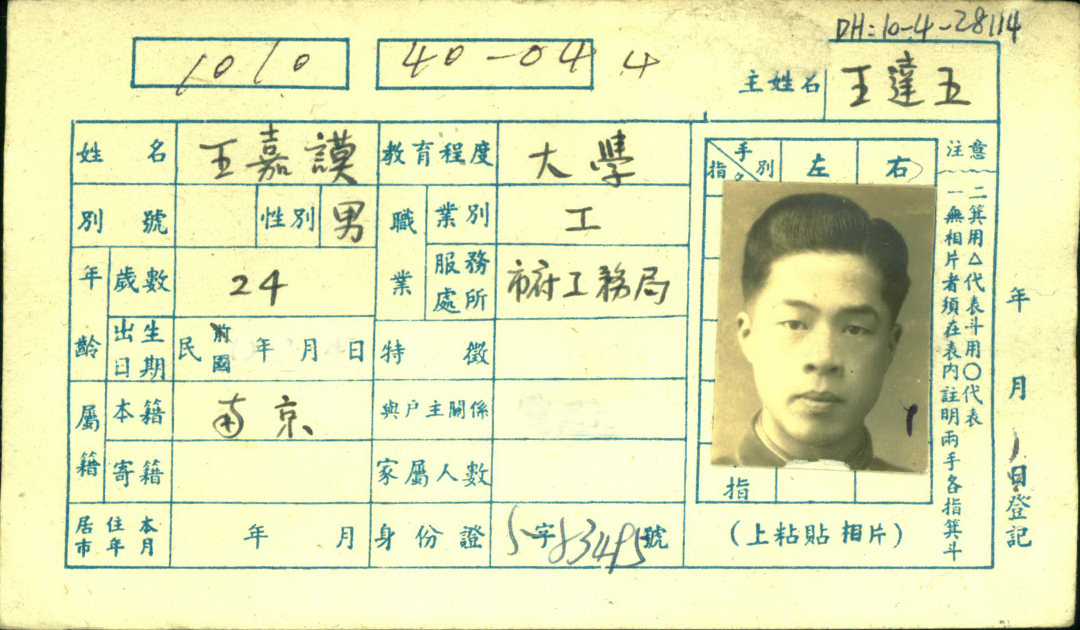 DH:10-4-28114
1010
40-04 4
戶主姓名 王達五
姓名 王嘉謨 教育程度 大學
別號 性別 男 職業 業別 工
年齡 歲數 24 服務處所 市府工務局
出生日期 民前國 年 月 日 特徵
屬籍 本籍 南京 與戶主關係
寄籍 家屬人數
居住本市年月 年 月 身份證 字 號
手別 左 右
指名
指
(上粘貼相片)
注意
一無相片者須在表內註明兩手各指箕斗
二箕用△代表斗用〇代表
年 月 日登記